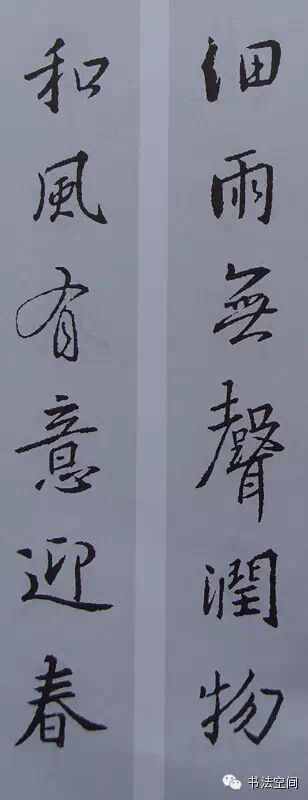 细雨無聲潤物
和風有意迎春
书法空间